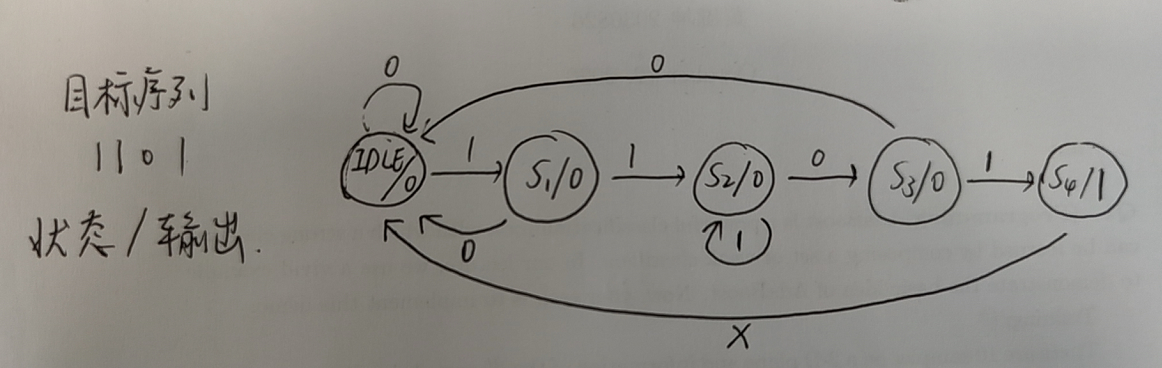 目标序列
1101
状态/输出.
0
0
IDLE/0 1 S1/0 1 S2/0 0 S3/0 1 S4/1
0
1
X